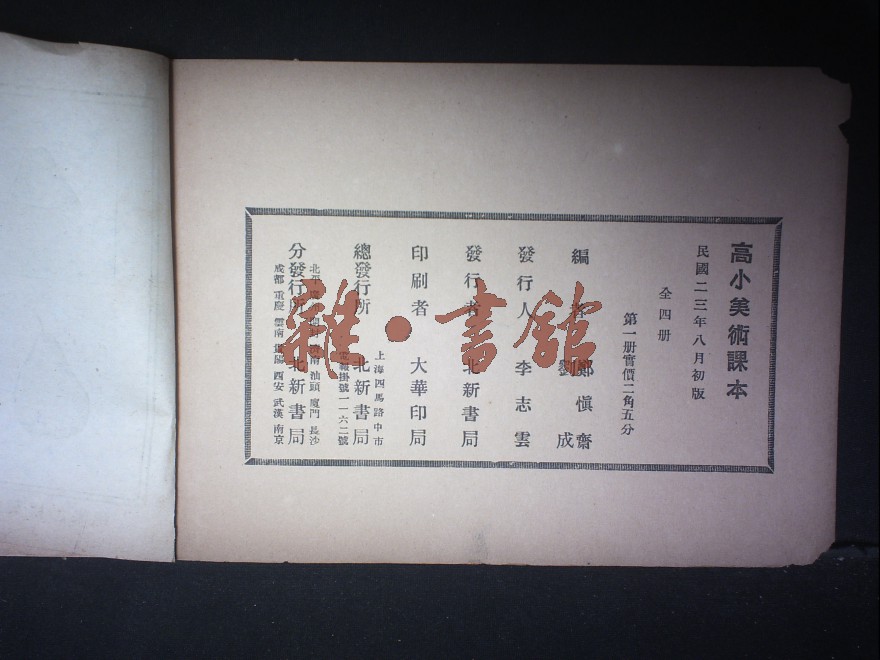 高小美術課本
民國二三年八月初版
全四册
第一册實價二角五分
編者 鄭慎齋
劉成
發行人 李志雲
發行者 北新書局
印刷者 大華印局
上海四馬路中市
總發行所 北新書局
電報掛號一一六二號
北平 開封 濟南 汕頭 廈門 長沙
分發行所 北新書局
成都 重慶 雲南 貴陽 西安 武漢 南京
雜·書館